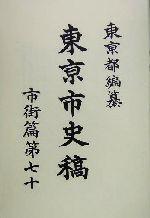 東京都編纂
東京市史稿
市街篇第七十